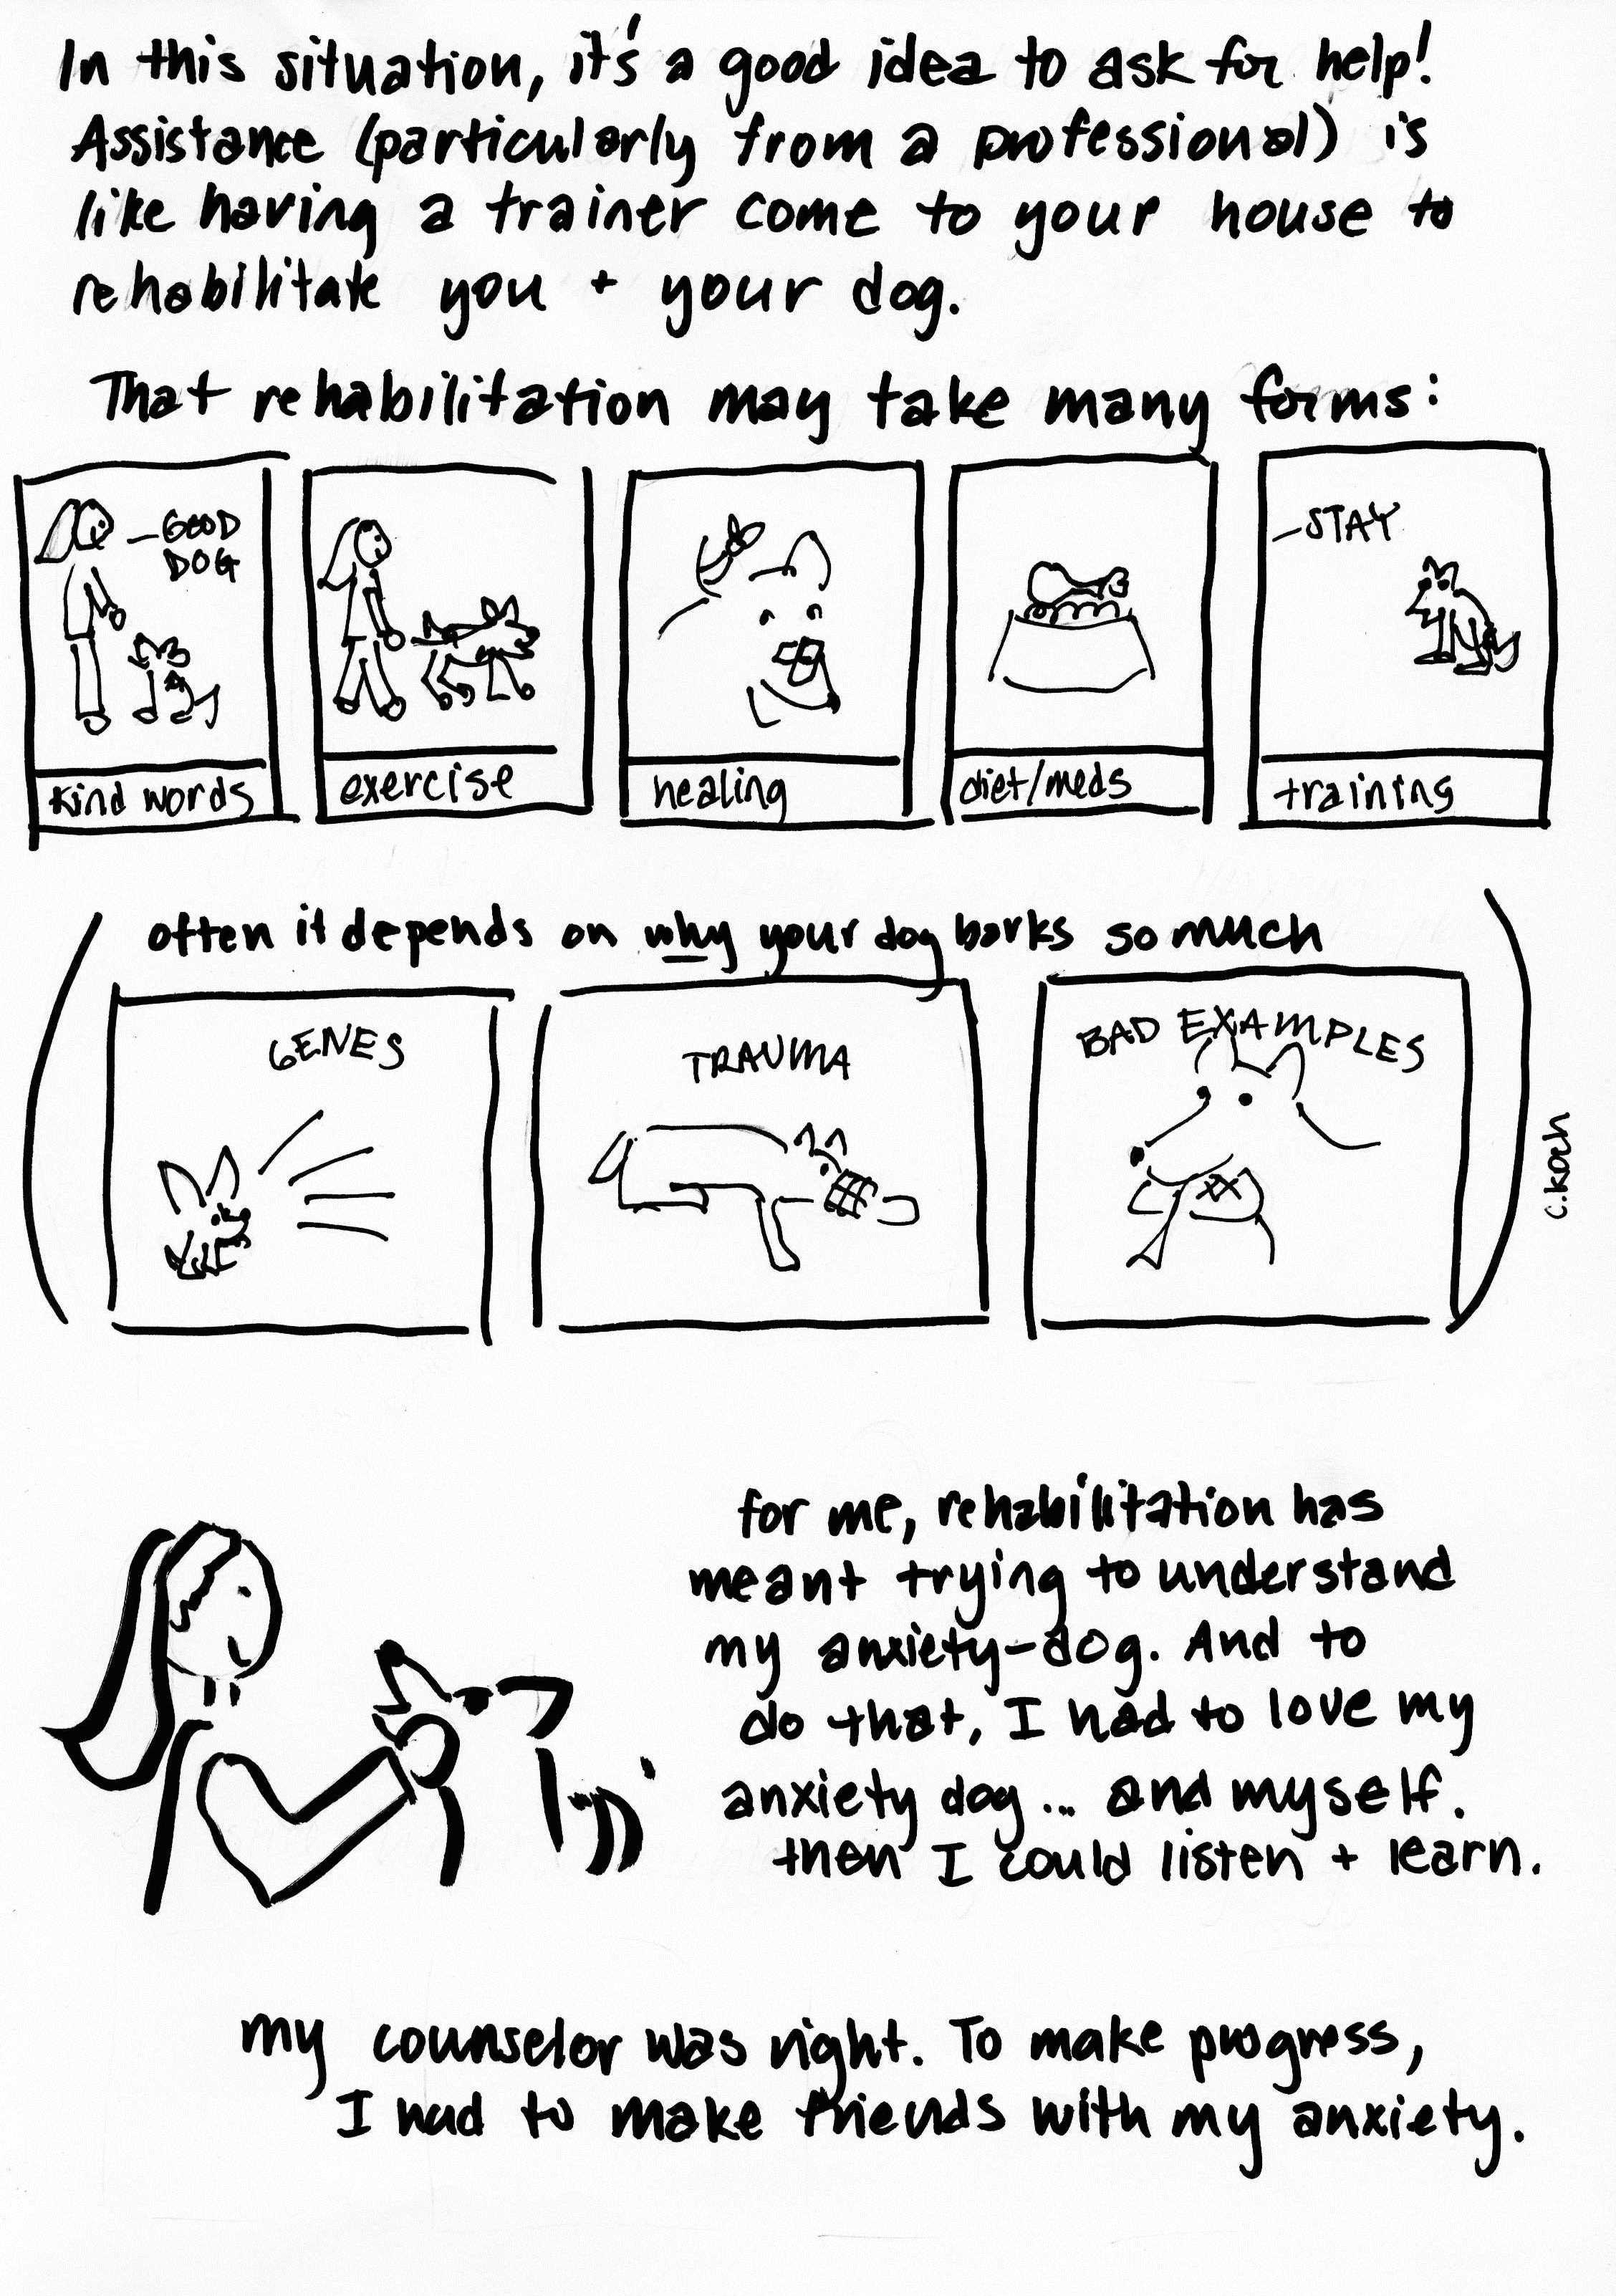 In this situation, it's a good idea to ask for help!
Assistance (particularly from a professional) is
like having a trainer come to your house to
rehabilitate you + your dog.
That rehabilitation may take many forms:
GOOD
DOG
STAY
kind words
exercise
healing
diet/meds
training
often it depends on why your dog barks so much
GENES
TRAUMA
BAD EXAMPLES
c.koch
for me, rehabilitation has
meant trying to understand
my anxiety-dog. And to
do that, I had to love my
anxiety dog... and myself.
then I could listen + learn.
my counselor was right. To make progress,
I had to make friends with my anxiety.